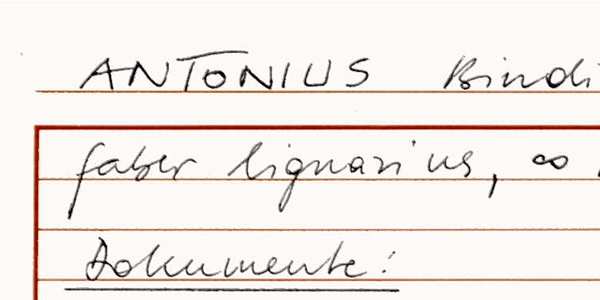 ANTONIUS Bindi
faber lignarius, ∞
Dokumente: